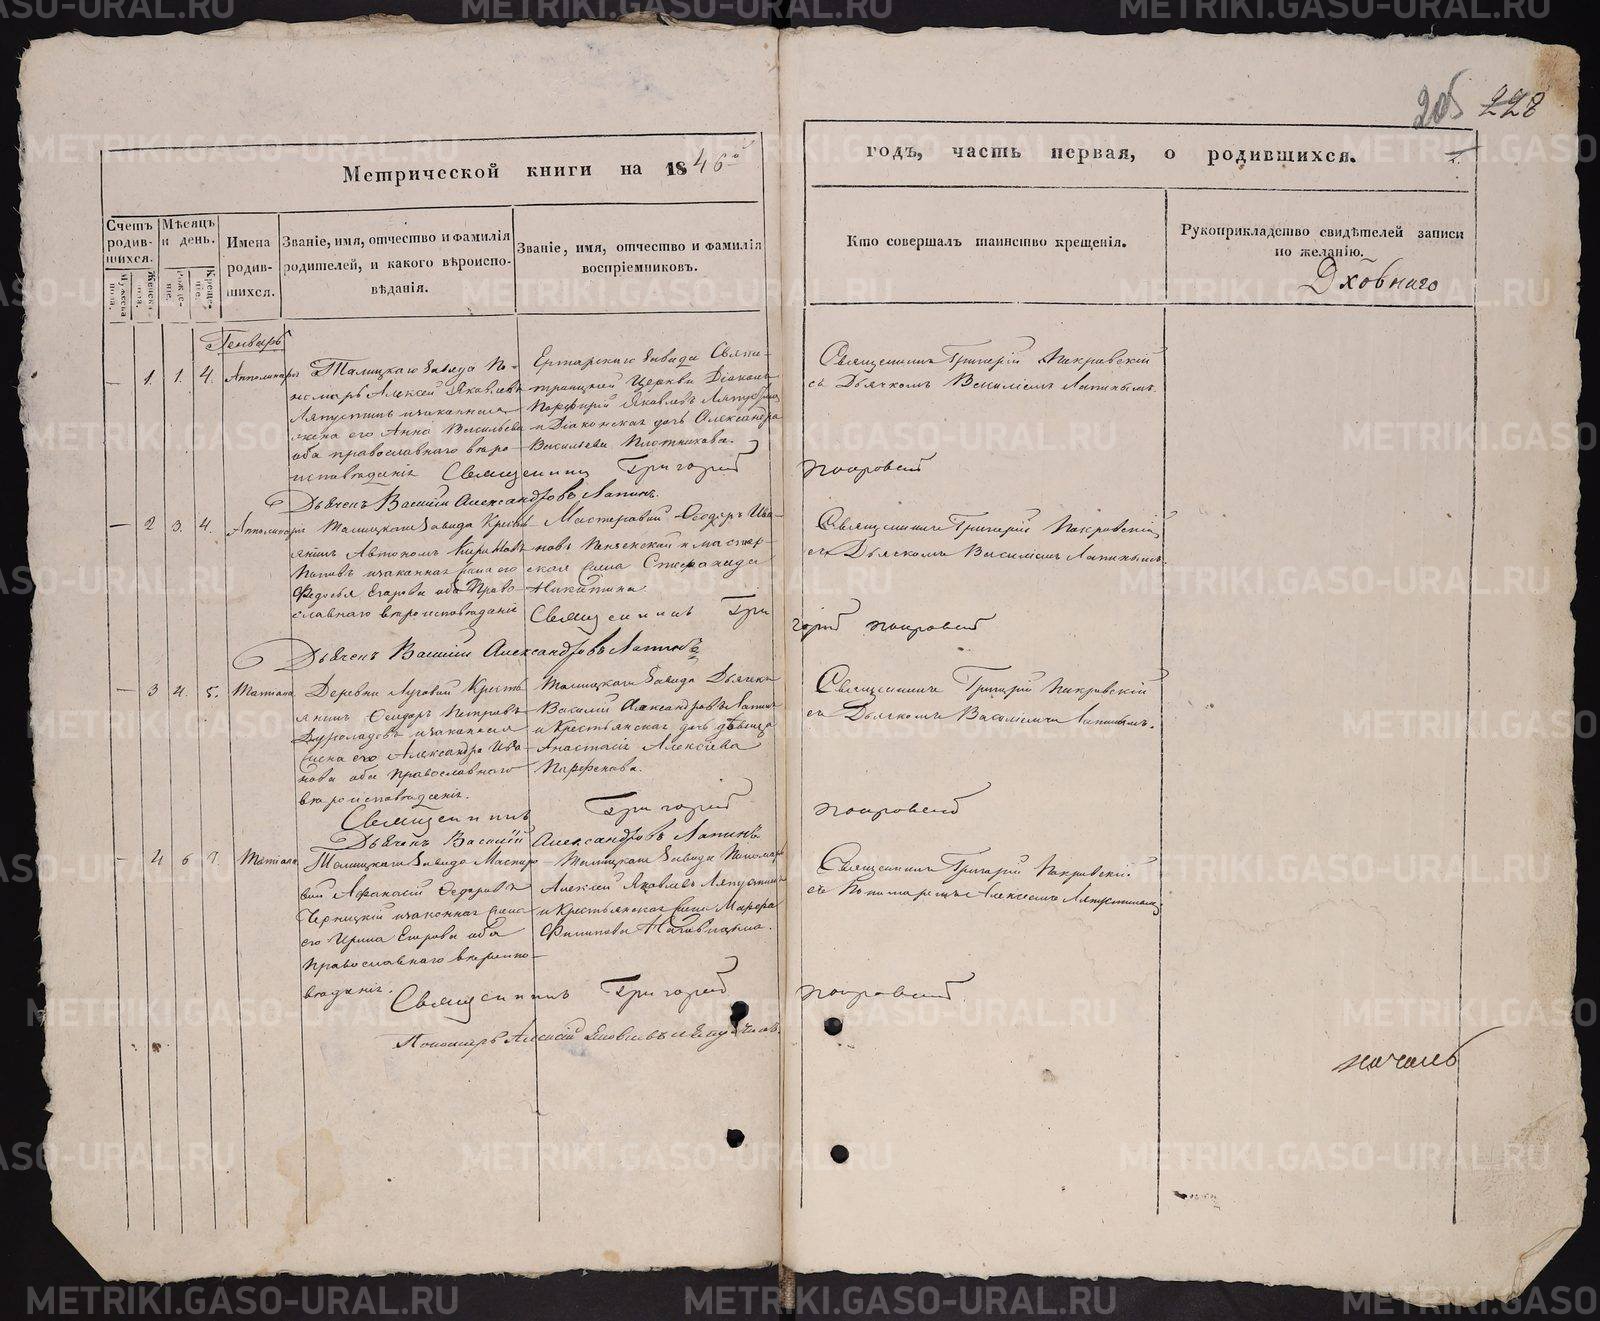 205 228
Метрической книги на 1846й
годъ, часть первая, о родившихся.
1.
Счетъ родив-
шихся.
Мужеска
пола.
Женска
пола.
Мѣсяцъ
и день.
Рожде-
ніе.
Креще-
ніе.
Имена
родив-
шихся.
Званіе, имя, отчество и фамилія
родителей, и какого вѣроиспо-
вѣданія.
Званіе, имя, отчество и фамилія
воспріемниковъ.
Кто совершалъ таинство крещенія.
Рукоприкладство свидѣтелей записи
по желанію.
Генварь
— 1. 1. 4.
Талицкаго завода По-
номарь Алексей Яковлевъ
Ляпустинъ и законная
жена его Анна Васильева
оба православнаго веро-
исповѣданія
Завода Святи-
троицкой Церкви Діаконъ
Порфирій Яковлевъ
и Діаконская дочь Александра
Васильева Плотникова.
Священникъ Григорій Покровскій
съ Дьячкомъ Василіемъ Лапинымъ.
Священникъ Григорій Покровскій
Дьячекъ Василій Александровъ Лапинъ.
— 2 3. 4.
Талицкаго Завода Кресть-
янинъ Автономъ
Поповъ и законная жена его
Федосья Егорова оба Право-
славнаго вероисповѣданія
Мастеровой Ѳеодоръ Ива-
новъ и мастер-
ская жена Степанида
Никитина
Священникъ Григорій Покровскій
съ Дьячкомъ Василіемъ Лапинымъ.
Священникъ Григорій Покровскій
Дьячекъ Василій Александровъ Лапинъ
— 3 4. 5. Татіана
Деревни Луговой Кресть-
янинъ Ѳедоръ Петровъ
и законная
жена его Александра Ива-
нова оба Православнаго
вероисповѣданія.
Талицкаго Завода Дьячекъ
Василій Александровъ Лапинъ
и Крестьянская дочь дѣвица
Анастасія Алексіева
Парфенова.
Священникъ Григорій Покровскій
съ Дьячкомъ Василіемъ Лапинымъ.
Священникъ Григорій Покровскій
Дьячекъ Василій Александровъ Лапинъ
— 4 6 7. Татіана
Талицкаго Завода Мастеро-
вой Афанасій Ѳедоровъ
Черницкій и законная жена
его Ирина Егорова оба
Православнаго вероиспо-
вѣданія.
Талицкаго Завода Пономарь
Алексій Яковлевъ Ляпустинъ
и Крестьянская жена Марфа
Филипова
Священникъ Григорій Покровскій
съ Пономаремъ Алексіемъ Ляпустинымъ
Священникъ Григорій Покровскій
Пономарь Алексій Яковлевъ Ляпустинъ
METRIKI.GASO-URAL.RU